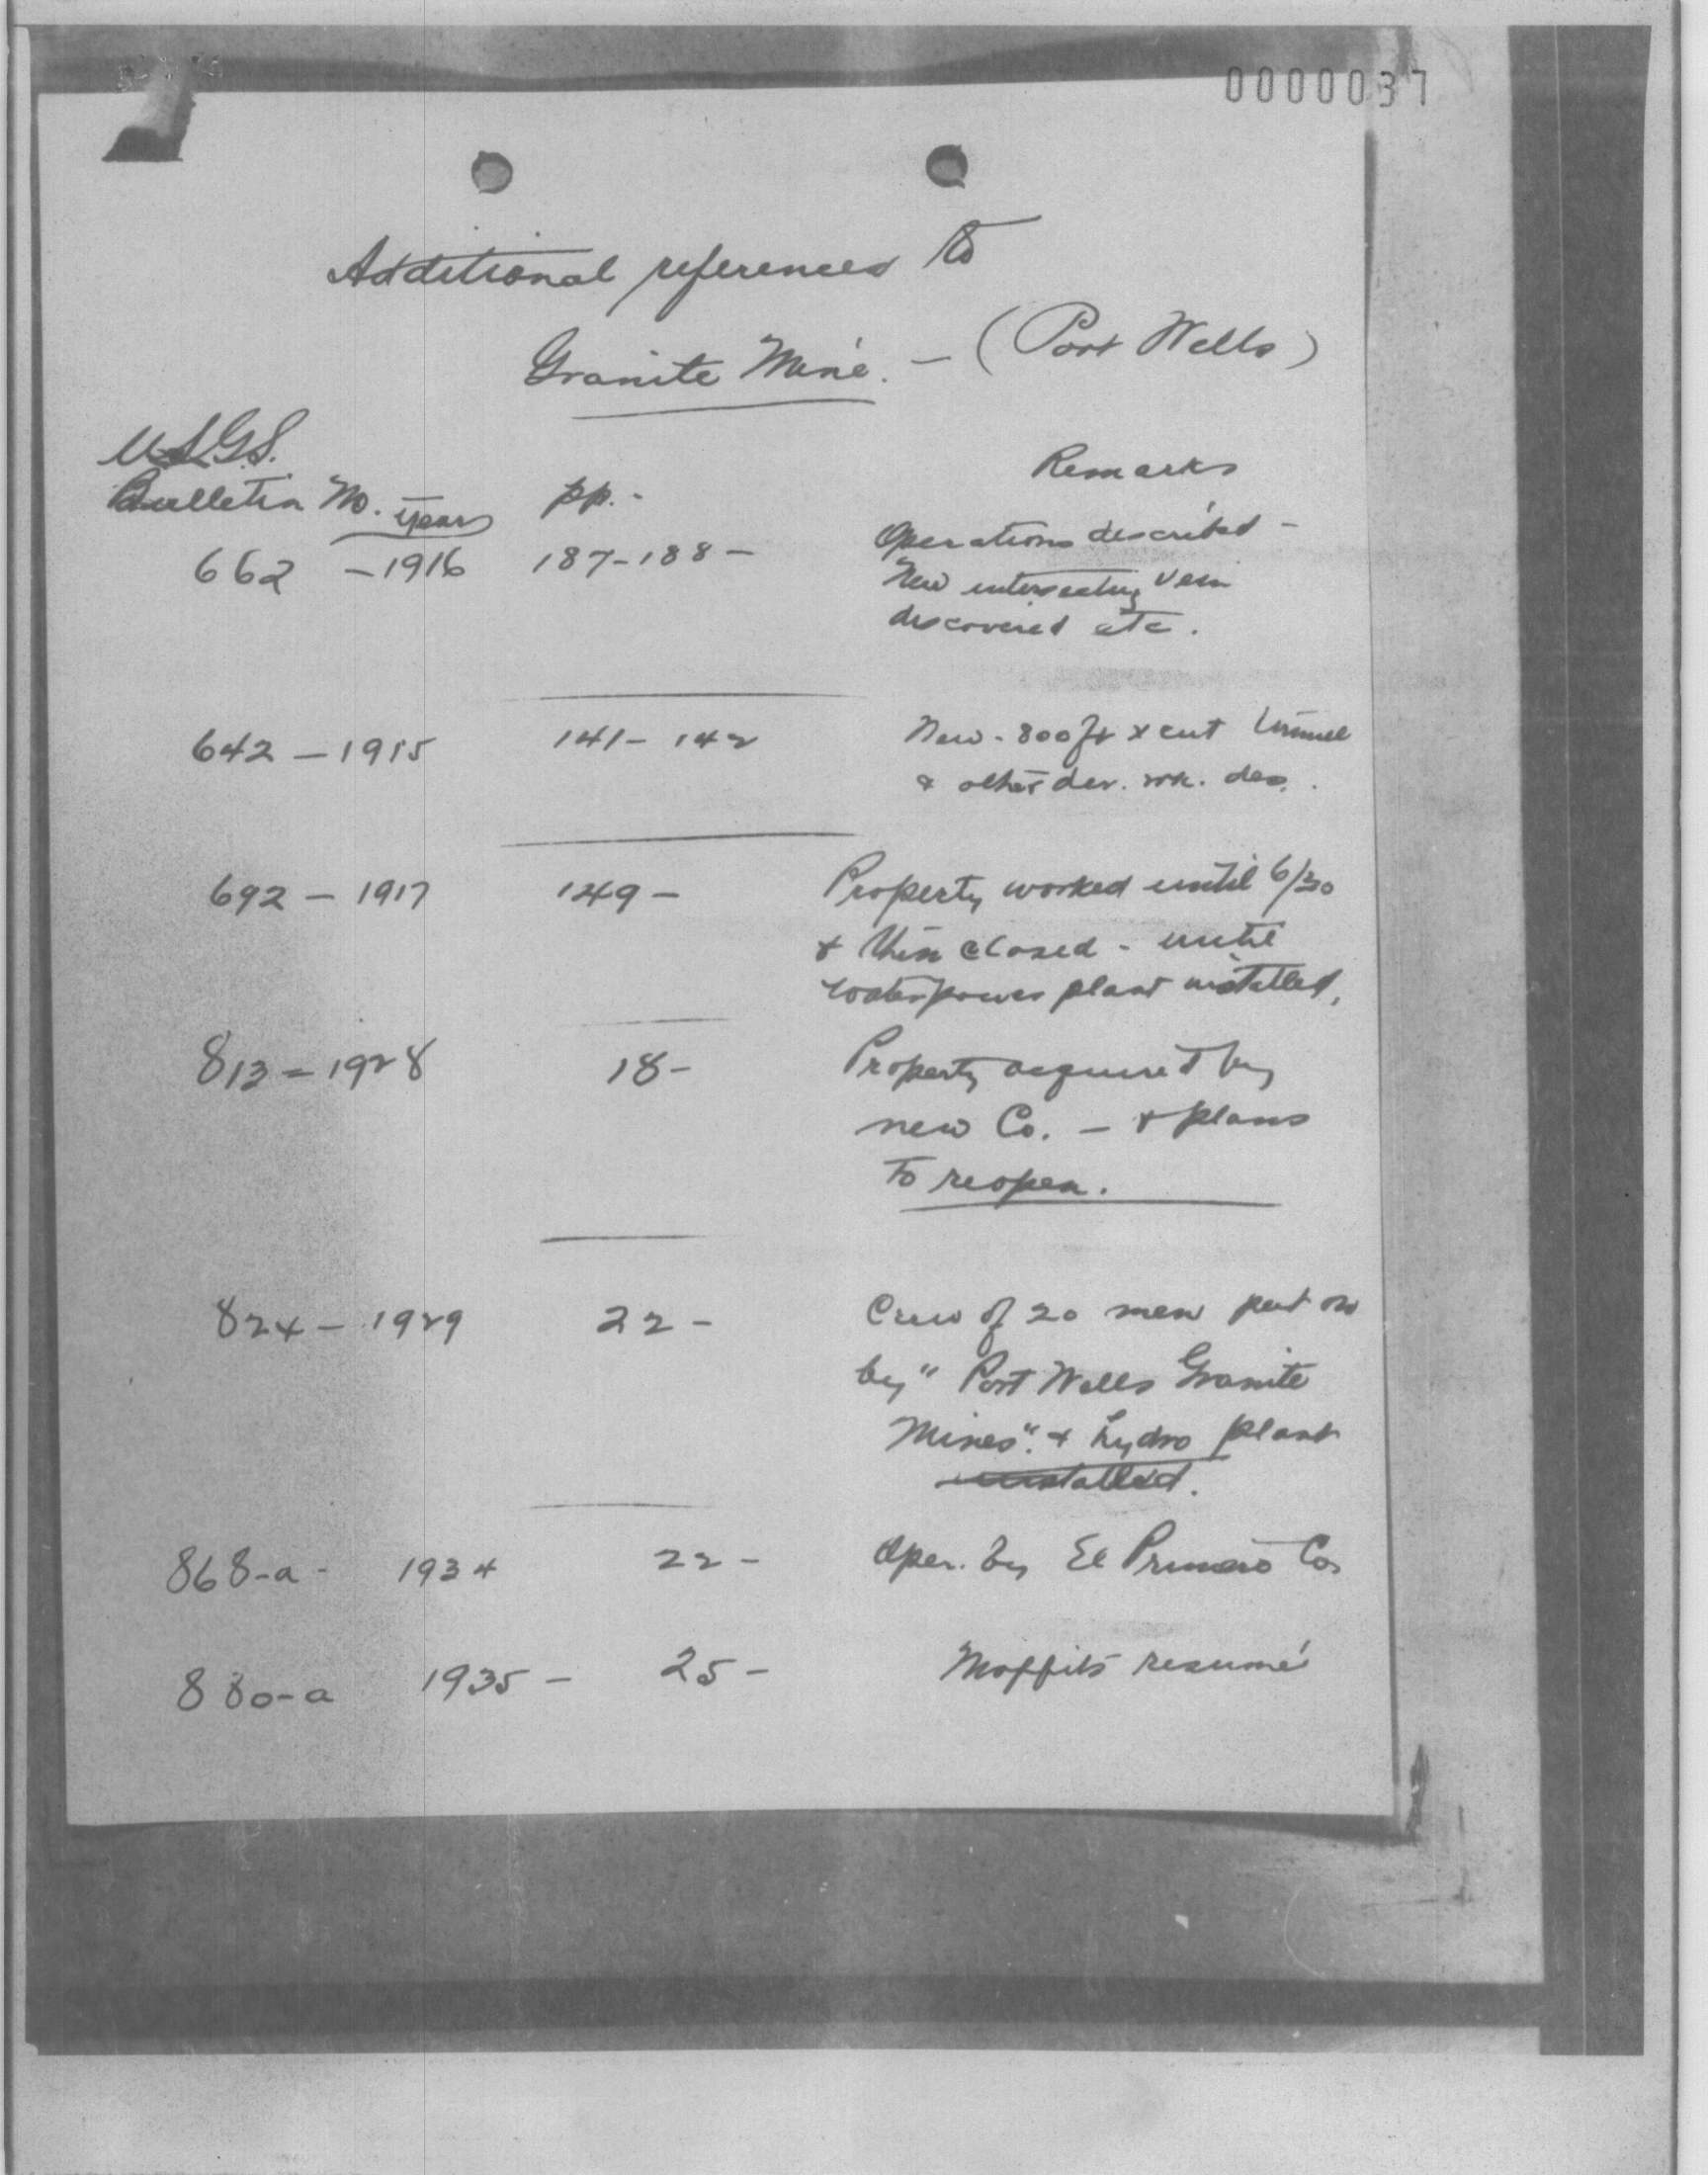 0000037
Additional references to
Granite Mine. - (Port Wells)
U.S.G.S.
Bulletin No. years pp. - Remarks
662 - 1916 187-188 - Operations described -
New intersecting vein
discovered etc.
642 - 1915 141 - 142 New - 800 ft x cut tunnel
& other dev. wk. des.
692 - 1917 149 - Property worked until 6/30
& then closed - until
waterpower plant installed.
813 - 1928 18 - Property acquired by
new Co. - & plans
to reopen.
824 - 1929 22 - Crew of 20 men put on
by "Port Wells Granite
Mines". & hydro plant
installed.
868-a - 1934 22 - Oper. by El Primero Co.
880-a 1935 - 25 - Moffits resumé